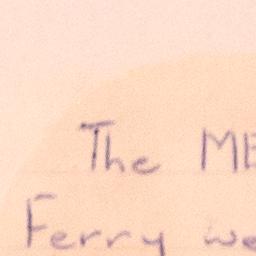 The ME
Ferry we